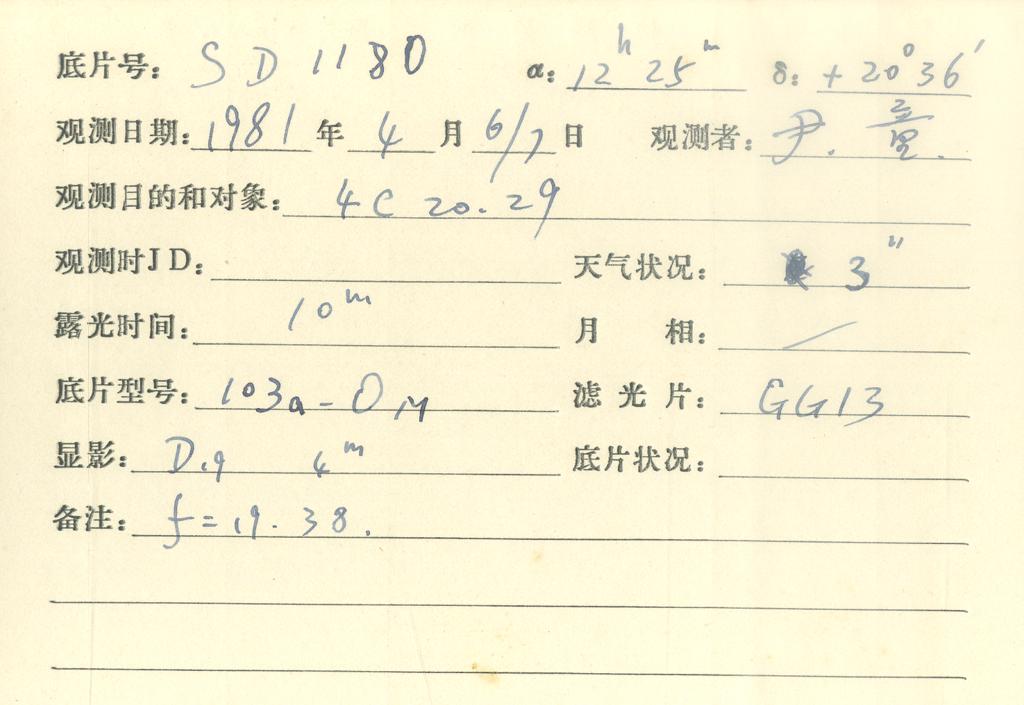 底片号： SD 1180 α： 12ʰ 25ᵐ δ： +20° 36′
观测日期： 1981 年 4 月 6/7 日 观测者： 尹. 童.
观测目的和对象： 4C 20.29
观测时JD： 天气状况： 3″
露光时间： 10ᵐ 月 相： /
底片型号： 103a-O M 滤光片： GG13
显影： D.19 4ᵐ 底片状况：
备注： f=19.38.